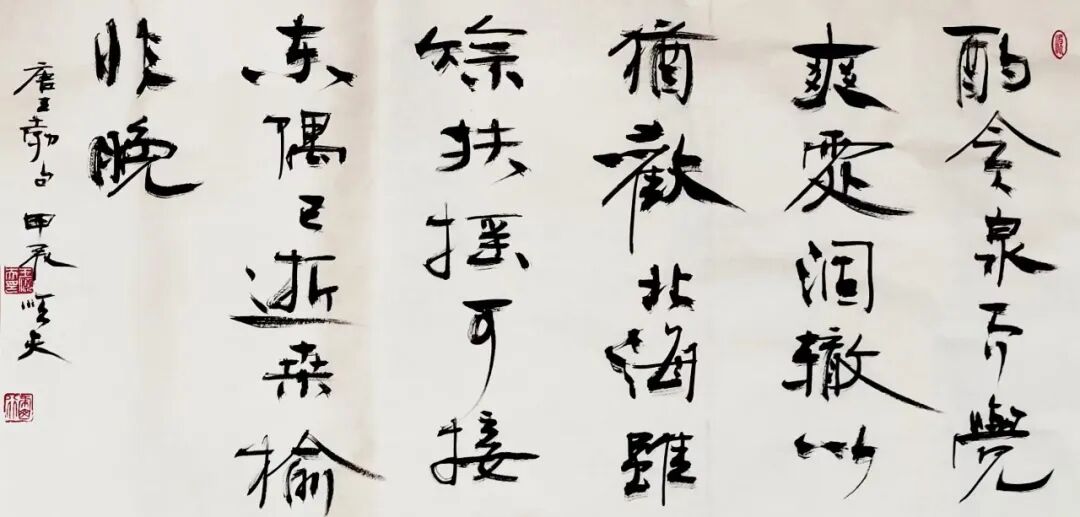 酌贪泉而覺
爽處涸辙以
猶歡北海雖
赊扶摇可接
东隅已逝桑榆
非晚
唐王勃句 甲辰